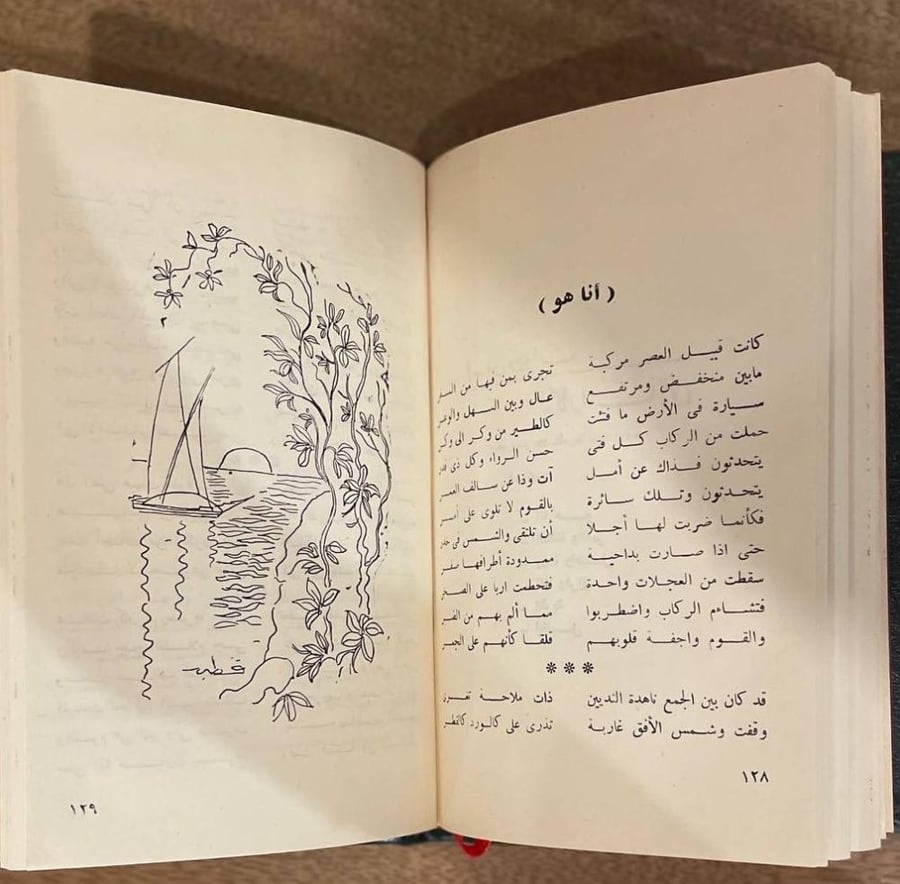 ( أنا هو )
كانت قبيل العصر مركبة تجرى بمن فيها من السفر
مابين منخفض ومرتفع عال وبين السهل والوعر
سيارة فى الأرض ما فتئت كالطير من وكر الى وكر
حملت من الركاب كل فتى حسن الرواء وكل ذى قدر
يتحدثون فذاك عن أمل آت وذا عن سالف العمر
يتحدثون وتلك سائرة بالقوم لا تلوى على أمر
فكأنما ضربت لها أجلا أن تلتقى والشمس فى خدر
حتى اذا صارت بداحية ممدودة أطرافها صفر
سقطت من العجلات واحدة فتحطمت اربا على الصخر
فتشاءم الركاب واضطربوا مما ألم بهم من الضر
والقوم واجفة قلوبهم قلقا كأنهم على الجمر
***
قد كان بين الجمع ناهدة الثديين ذات ملاحة تغرى
وقفت وشمس الأفق غاربة تذرى على كالورد كالقطر
١٢٨
قطب
١٢٩